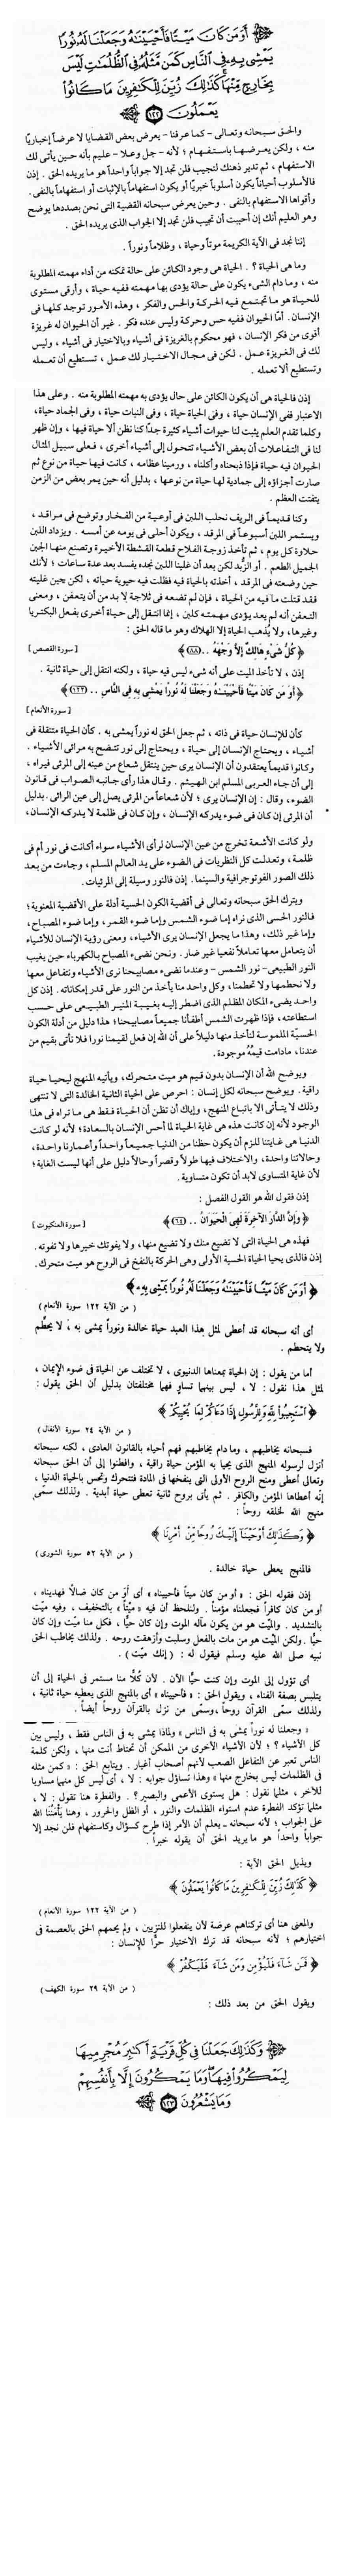 أَوَمَن كَانَ مَيْتًا فَأَحْيَيْنَاهُ وَجَعَلْنَا لَهُ نُورًا
يَمْشِي بِهِ فِي النَّاسِ كَمَن مَّثَلُهُ فِي الظُّلُمَاتِ لَيْسَ
بِخَارِجٍ مِّنْهَا كَذَٰلِكَ زُيِّنَ لِلْكَافِرِينَ مَا كَانُوا
يَعْمَلُونَ ١٢٢
والحق سبحانه وتعالى - كما عرفنا - يعرض بعض القضايا لا عرضاً إخبارياً
منه ، ولكن يعرضها باستفهام ؛ لأنه - جل وعلا - عليم بأنه حين يأتى لك
الاستفهام ، ثم تدير ذهنك لتجيب فلن تجد إلا جواباً واحداً هو ما يريده الحق . إذن
فالأسلوب أحياناً يكون أسلوباً خبريًا أو يكون استفهاماً بالإثبات أو استفهاماً بالنفى.
وأقواها الاستفهام بالنفى . وحين يعرض سبحانه القضية التى نحن بصددها يوضح
وهو العليم أنك إن أحببت أن تجيب فلن تجد إلا الجواب الذى يريده الحق .
إننا نجد فى الآية الكريمة موتاً وحياة ، وظلاماً ونوراً .
وما هى الحياة ؟ . الحياة هى وجود الكائن على حالة تمكنه من أداء مهمته المطلوبة
منه ، وما دام الشىء يكون على حالة يؤدى بها مهمته ففيه حياة ، وأرقى مستوى
للحياة هو ما تجتمع فيه الحركة والحس والفكر ، وهذه الأمور توجد كلها فى
الإنسان. أمّا الحيوان ففيه حس وحركة وليس عنده فكر . غير أن الحيوان له غريزة
أقوى من فكر الإنسان ، فهو محكوم بالغريزة فى أشياء وبالاختيار فى أشياء ، وليس
لك فى الغريزة عمل . لكن فى مجال الاختيار لك عمل ، تستطيع أن تعمله
وتستطيع ألا تعمله .
إذن فالحياة هى أن يكون الكائن على حال يؤدى به مهمته المطلوبة منه . وعلى هذا
الاعتبار ففى الإنسان حياة ، وفى الحياة حياة ، وفى النبات حياة ، وفى الجماد حياة ،
وكلما تقدم العلم يثبت لنا حيوات أشياء كثيرة جدًا كنا نظن ألا حياة فيها ، وإن ظهر
لنا فى التفاعلات أن بعض الأشياء تتحول إلى أشياء أخرى ، فعلى سبيل المثال
الحيوان فيه حياة فإذا ذبحناه وأكلناه ، ورمينا عظامه ، كانت فيها حياة من نوع ثم
صارت أجزاؤه إلى جمادية لها حياة من نوعها ، بدليل أنه حين يمر بعض من الزمن
يتفتت العظم .
وكنا قديماً فى الريف نحلب اللبن فى أوعية من الفخار وتوضع فى مراقد ،
ويستمر اللبن أسبوعاً فى المرقد ، ويكون أحلى فى يومه عن أمسه . ويزداد اللبن
حلاوة كل يوم ، ثم تأخذ زوجة الفلاح قطعة القشطة الأخيرة وتصنع منها الجبن
الجميل الطعم . أو الزُبد لكن بعد أن غلينا اللبن نجده يفسد بعد عدة ساعات ؛ لأنك
حين وضعته فى المرقد ، أخذته بالحياة فيه فظلت فيه حيوية حياته ، لكن حين غليته
فقد قتلت ما فيه من الحياة ، فإن لم تضعه فى ثلاجة لا بد من أن يتعفن ، ومعنى
التعفن أنه لم يعد يؤدى مهمته كلبن ، إنما انتقل إلى حياة أخرى بفعل البكتريا
وغيرها، ولا يُذهب الحياة إلا الهلاك وهو ما قاله الحق :
﴿ كُلُّ شَىْءٍ هَالِكٌ إِلاَّ وَجْهَهُ .. (٨٨) ﴾ [ سورة القصص ]
إذن ، لا تأخذ الميت على أنه شىء ليس فيه حياة ، ولكنه انتقل إلى حياة ثانية .
﴿ أَوَ مَن كَانَ مَيْتًا فَأَحْيَيْنَاهُ وَجَعَلْنَا لَهُ نُورًا يَمْشِى بِهِ فِى النَّاسِ .. (١٢٢) ﴾
[ سورة الأنعام ]
كأن للإنسان حياة فى ذاته ، ثم جعل الحق له نوراً يمشى به . كأن الحياة متنقلة فى
أشياء ، ويحتاج الإنسان إلى حياة ، ويحتاج إلى نور تتضح به مرائى الأشياء .
وكانوا قديماً يعتقدون أن الإنسان يرى حين ينتقل شعاع من عينه إلى المرئى فيراه ،
إلى أن جاء العربى المسلم ابن الهيثم . وقال هذا رأى جانبه الصواب فى قانون
الضوء، وقال : إن الإنسان يرى ؛ لأن شعاعاً من المرئى يصل إلى عين الرائى . بدليل
أن المرئى إن كان فى ضوء يدركه الإنسان ، وإن كان فى ظلمة لا يدركه الإنسان،
ولو كانت الأشعة تخرج من عين الإنسان لرأى الأشياء سواء أكانت فى نور أم فى
ظلمة، وتعدلت كل النظريات فى الضوء على يد العالم المسلم، وجاءت من بعد
ذلك الصور الفوتوجرافية والسينما. إذن فالنور وسيلة إلى المرئيات .
ويترك الحق سبحانه وتعالى فى أقضية الكون الحسية أدلة على الأقضية المعنوية ؛
فالنور الحسى الذى نراه إما ضوء الشمس وإما ضوء القمر ، وإما ضوء المصباح،
وإما غير ذلك، وهذا ما يجعل الإنسان يرى الأشياء، ومعنى رؤية الإنسان للأشياء
أن يتعامل معها تعاملاً نفعيا غير ضار . ونحن نضىء المصباح بالكهرباء حين يغيب
النور الطبيعى - نور الشمس - وعندما نضىء مصابيحنا نرى الأشياء ونتفاعل معها
ولا نحطمها ولا تحطمنا، وكل واحد منا يأخذ من النور على قدر إمكاناته . إذن كل
واحد يضىء المكان المظلم الذى اضطر إليه بغيبة المنير الطبيعى على حسب
استطاعته، فإذا ظهرت الشمس أطفأنا جميعاً مصابيحنا؛ هذا دليل من أدلة الكون
الحسيّة الملموسة لنأخذ منها دليلاً على أن الله إن فعل لقيمنا نورا فلا نأتى بقيم من
عندنا، مادامت قيمُهُ موجودة.
ويوضح الله أن الإنسان بدون قيم هو ميت متحرك، ويأتيه المنهج ليحيا حياة
راقية . ويوضح سبحانه لكل إنسان : احرص على الحياة الثانية الخالدة التى لا تنتهى
وذلك لا يتأتى الا باتباع المنهج، وإياك أن تظن أن الحياة فقط هى ما تراه فى هذا
الوجود لأنه إن كانت هذه هى غاية الحياة لما أحس الإنسان بالسعادة؛ لأنه لو كانت
الدنيا هى غايتنا للزم أن يكون حظنا من الدنيا جميعاً واحداً وأعمارنا واحدة،
وحالاتنا واحدة، والاختلاف فيها طولاً وقصراً وحالاً دليل على أنها ليست الغاية ؛
لأن غاية المتساوى لابد أن تكون متساوية .
إذن فقول الله هو القول الفصل :
﴿ وَإِنَّ الدَّارَ الآخِرَةَ لَهِىَ الْحَيَوَانُ .. (٦٤) ﴾ [ سورة العنكبوت ]
فهذه هى الحياة التى لا تضيع منك ولا تضيع منها، ولا يفوتك خيرها ولا تفوته .
إذن فالذى يحيا الحياة الحسية الأولى وهى الحركة بالنفخ فى الروح هو ميت متحرك.
﴿ أَوَمَن كَانَ مَيْتًا فَأَحْيَيْنَاهُ وَجَعَلْنَا لَهُ نُورًا يَمْشِي بِهِ ﴾
( من الآية ١٢٢ سورة الأنعام )
أى أنه سبحانه قد أعطى لمثل هذا العبد حياة خالدة ونوراً يمشى به ، لا يحطِّم
ولا يتحطم .
أما من يقول : إن الحياة بمعناها الدنيوى ، لا تختلف عن الحياة فى ضوء الإيمان ،
لمثل هذا نقول : لا ، ليس بينهما تساوٍ فهما مختلفتان بدليل أن الحق يقول :
﴿ اسْتَجِيبُوا لِلَّهِ وَلِلرَّسُولِ إِذَا دَعَاكُمْ لِمَا يُحْيِيكُمْ ﴾
( من الآية ٢٤ سورة الأنفال )
فسبحانه يخاطبهم ، وما دام يخاطبهم فهم أحياء بالقانون العادى ، لكنه سبحانه
أنزل لرسوله المنهج الذى يحيا به المؤمن حياة راقية ، وافطنوا إلى أن الحق سبحانه
وتعالى أعطى ومنح الروح الأولى التى ينفخها فى المادة فتتحرك وتحس بالحياة الدنيا ،
إنّه أعطاها المؤمن والكافر . ثم يأتى بروح ثانية تعطى حياة أبدية . ولذلك سمّى
منهج الله لخلقه روحاً :
﴿ وَكَذَٰلِكَ أَوْحَيْنَا إِلَيْكَ رُوحًا مِّنْ أَمْرِنَا ﴾
( من الآية ٥٢ سورة الشورى )
فالمنهج يعطى حياة خالدة .
إذن فقوله الحق : « أو من كان ميتاً فأحييناه » أى أوَ من كان ضالاً فهديناه ،
أو من كان كافراً فجعلناه مؤمناً . ولنلحظ أن فيه « ميْتاً » بالتخفيف ، وفيه ميّت
بالتشديد . والميّت هو من يكون مآله الموت وإن كان حيًّا ، فكل منا ميّت وإن كان
حيًّا . ولكن الميْت هو من مات بالفعل وسلبت وأزهقت روحه . ولذلك يخاطب الحق
نبيه صلى الله عليه وسلم فيقول له : ( إنك ميّت ) .
أى تؤول إلى الموت وإن كنت حيًّا الآن . لأن كُلًّا منا مستمر فى الحياة إلى أن
يتلبس بصفة الفناء ، ويقول الحق : « فأحييناه » أى بالمنهج الذى يعطيه حياة ثانية ،
ولذلك سمّى القرآن روحاً ، وسمّى من نزل بالقرآن روحاً أيضاً .
« وجعلنا له نوراً يمشى به فى الناس » ولماذا يمشى به فى الناس فقط ، وليس بين
كل الأشياء ؟ ؛ لأن الأشياء الأخرى من الممكن أن تحتاط أنت منها ، ولكن كلمة
الناس تعبر عن التفاعل الصعب لأنهم أصحاب أغيار . ويتابع الحق : « كمن مثله
فى الظلمات ليس بخارج منها » وهذا تساؤل جوابه : لا ، أى ليس كل منهما مساويا
للآخر ، مثلما نقول : هل يستوى الأعمى والبصير ؟ . والفطرة هنا تقول : لا ،
مثلما تؤكد الفطرة عدم استواء الظلمات والنور ، أو الظل والحرور ، وهنا يأْمَنُنا الله
على الجواب ؛ لأنه سبحانه ـ يعلم أن الأمر إذا طرح كسؤال وكاستفهام فلن نجد إلا
جواباً واحداً هو ما يريد الحق أن يقوله خبراً .
ويذيل الحق الآية :
﴿ كَذَٰلِكَ زُيِّنَ لِلْكَافِرِينَ مَا كَانُوا يَعْمَلُونَ ﴾
( من الآية ١٢٢ سورة الأنعام )
والمعنى هنا أى تركناهم عرضة لأن ينفعلوا للتزيين ، ولم يحمهم الحق بالعصمة فى
اختيارهم ؛ لأنه سبحانه قد ترك الاختيار حرًّا للإنسان :
﴿ فَمَن شَاءَ فَلْيُؤْمِن وَمَن شَاءَ فَلْيَكْفُرْ ﴾
( من الآية ٢٩ سورة الكهف )
ويقول الحق من بعد ذلك :
وَكَذَٰلِكَ جَعَلْنَا فِي كُلِّ قَرْيَةٍ أَكَابِرَ مُجْرِمِيهَا
لِيَمْكُرُوا فِيهَا وَمَا يَمْكُرُونَ إِلَّا بِأَنفُسِهِمْ
وَمَا يَشْعُرُونَ ١٢٣